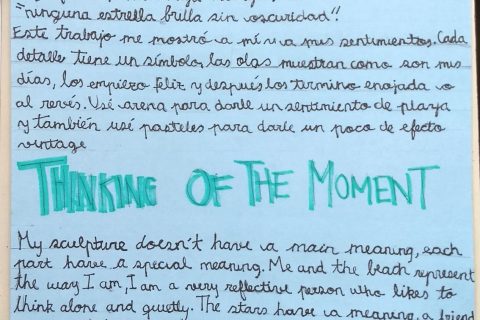 "ninguna estrella brilla sin oscuridad"!
Este trabajo me mostró a mí y a mis sentimientos. Cada
detalle tiene un símbolo, las olas muestran como son mis
días, los empiezo feliz y después los termino enojada o
al revés. Usé arena para darle un sentimiento de playa
y también usé pasteles para darle un poco de efecto
vintage
THINKING OF THE MOMENT
My sculpture doesn't have a main meaning, each
part have a special meaning. Me and the beach represent
the way I am, I am a very reflective person who likes to
think alone and quietly. The stars have a meaning, a friend